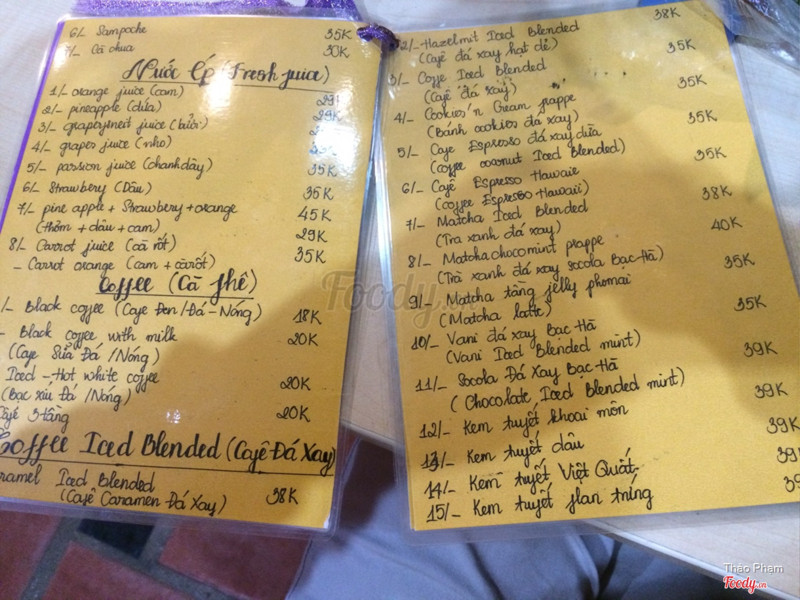 6/- Sampoche 35K
7/- Cà chua 30K
Nước Ép (Fresh juice)
1/- orange juice (cam) 29K
2/- pineapple (dứa) 29K
3/- grapeyment juice (bưởi)
4/- grapes juice (nho)
5/- passion juice (chanh dây) 35K
6/- Strawbery (Dâu) 35K
7/- pine apple + Strawbery + orange 45K
(thơm + dâu + cam)
8/- Carrot juice (cà rốt) 29K
- Carrot orange (cam + càrốt) 35K
Coffee (Cà phê)
/- Black coffee (Cafe Đen / Đá - Nóng) 18K
- Black coffee with milk 20K
(Cafe Sữa Đá / Nóng)
Iced - Hot white coffee 20K
(Bạc xỉu Đá / Nóng)
Café 3 tầng 20K
Coffee Iced Blended (Cafê Đá Xay)
aramel Iced Blended 38K
(Cafê Caramen Đá Xay)
2/- Hazelmit Iced Blended 38K
(Cafê đá xay hạt dẻ)
3/- Coffe Iced Blended 35K
(Cafê đá xay)
4/- Cookies'n Cream frappe 35K
(Bánh cookies đá xay)
5/- Cafe Espresso đá xay dừa 35K
(coffee coconut Iced Blended)
6/- Cafê Espresso Hawaie 35K
(Coffee Espresso Hawaii)
7/- Matcha Iced Blended 38K
(Trà xanh đá xay)
8/- Matcha chocomint prappe 40K
(Trà xanh đá xay socola Bạc-Hà)
9/- Matcha tầng jelly phomai 35K
(Matcha latte)
10/- Vani đá xay Bạc Hà 35K
(Vani Iced Blended mint)
11/- Socola Đá Xay Bạc-Hà 39K
(Chocolate Iced Blended mint)
12/- Kem tuyết khoai môn 39K
13/- Kem tuyết dâu 39K
14/- Kem tuyết Việt Quất 39
15/- Kem tuyết flan trứng 39
Foody.vn
Thảo Phạm
Foody.vn